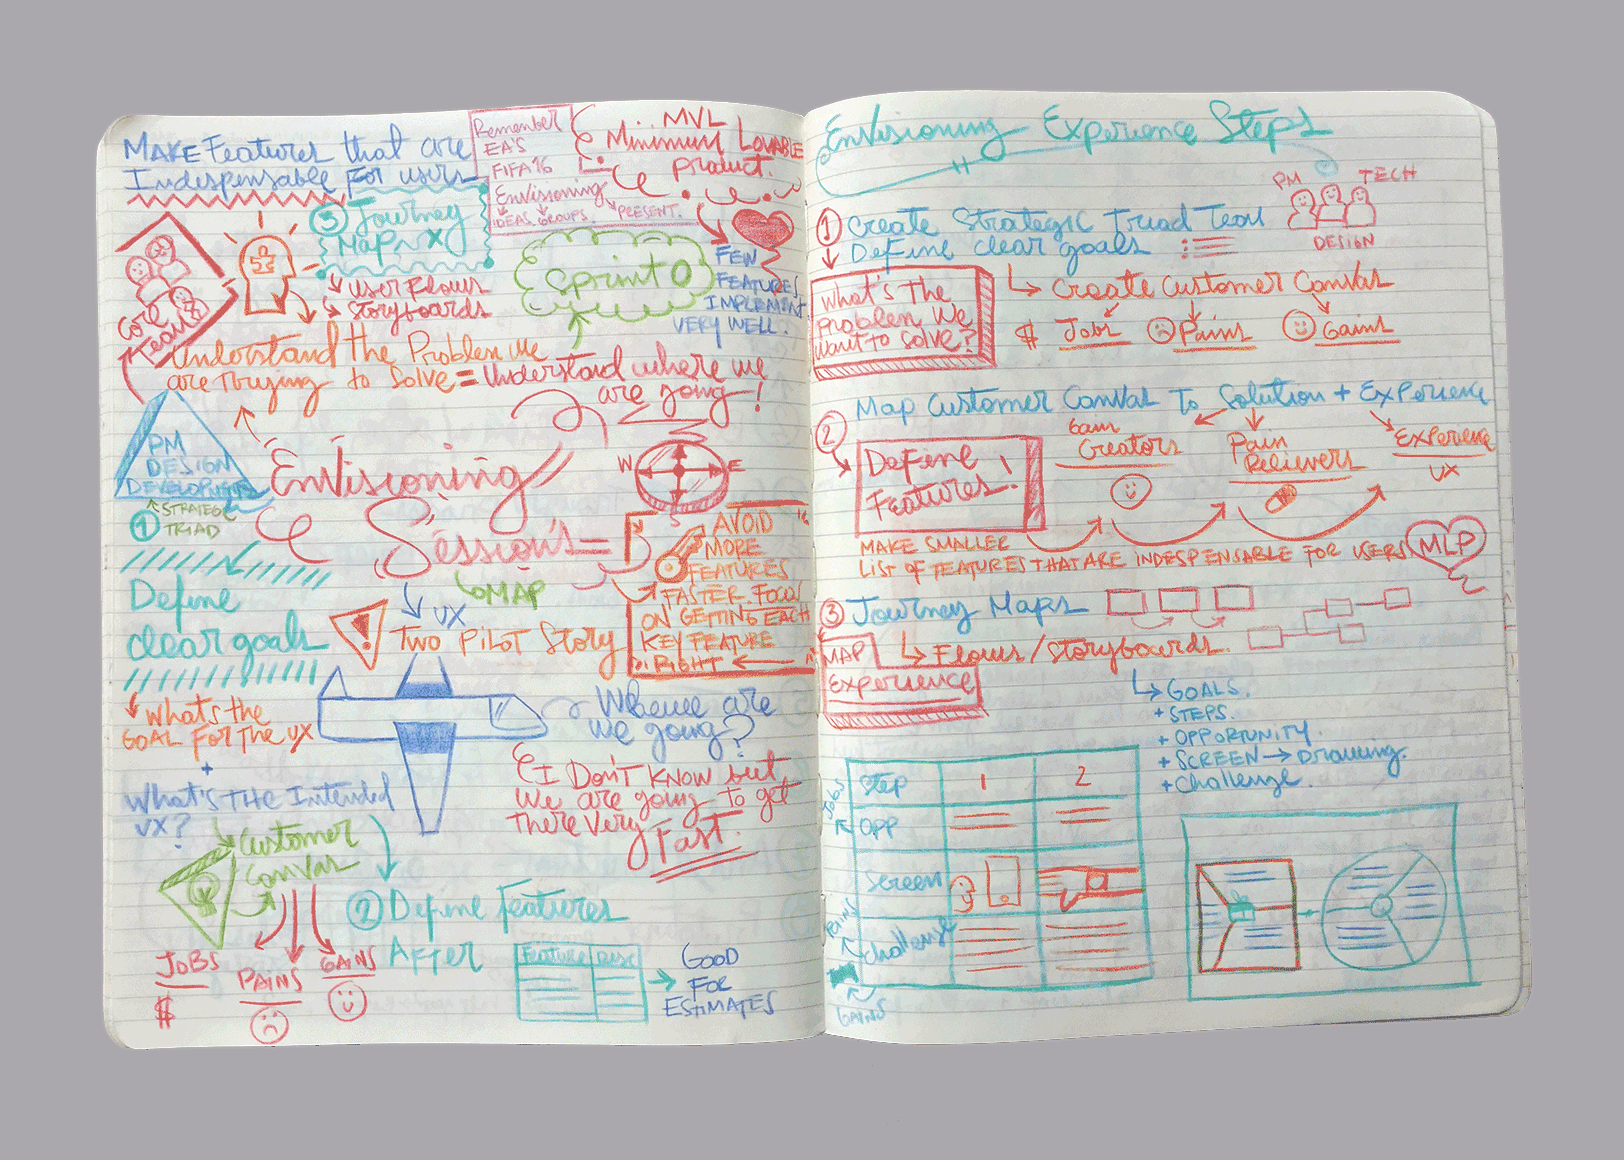 Make Features that are
Indespensable for users
Remember
EA'S
FIFA16
Envisioning
IDEAS GROUPS. PRESENT.
MVL
Minimum Lovable
Product.
Few
Features
Implement
very well.
3 Journey
Map UX
User Flows
Storyboards
Sprint 0
Core
Team
Understand the Problem we
are trying to solve = Understand where we
are going!
PM
DESIGN
DEVELOPMENT
STRATEGIC
TRIAD
1
Envisioning
Session's =
MAP
UX
W E
S
AVOID
MORE
FEATURES
FASTER. FOCUS
ON GETTING EACH
KEY FEATURE
RIGHT
Define
clear goals
What's the
GOAL FOR THE UX
+
What's THE Intended
UX?
Two Pilot Story
Where are
we going?
I DON'T KNOW but
We are going to get
there very
Fast.
Customer
Canvas
JOBS
$
PAINS
GAINS
2 Define Features
After
Feature
GOOD
FOR
ESTIMATES
Envisioning Experience Steps
PM TECH
DESIGN
1 Create Strategic Triad Team
Define clear goals
What's The
problem We
want to solve?
Create Customer Canvas
$ Jobs Pains Gains
2 Map Customer Canvas To Solution + Experience
Define
Features!
Gain
Creators
Pain
Relievers
Experience
UX
MAKE SMALLER
LIST OF FEATURES THAT ARE INDESPENSABLE FOR USERS
MLP
3 Journey Maps
Flows/Storyboards.
MAP
Experience
GOALS.
+ STEPS.
+ OPPORTUNITY.
+ SCREEN → Drawing.
+ Challenge.
Step 1 2
OPP
Screen
Challenge
JOBS
PAINS
GAINS